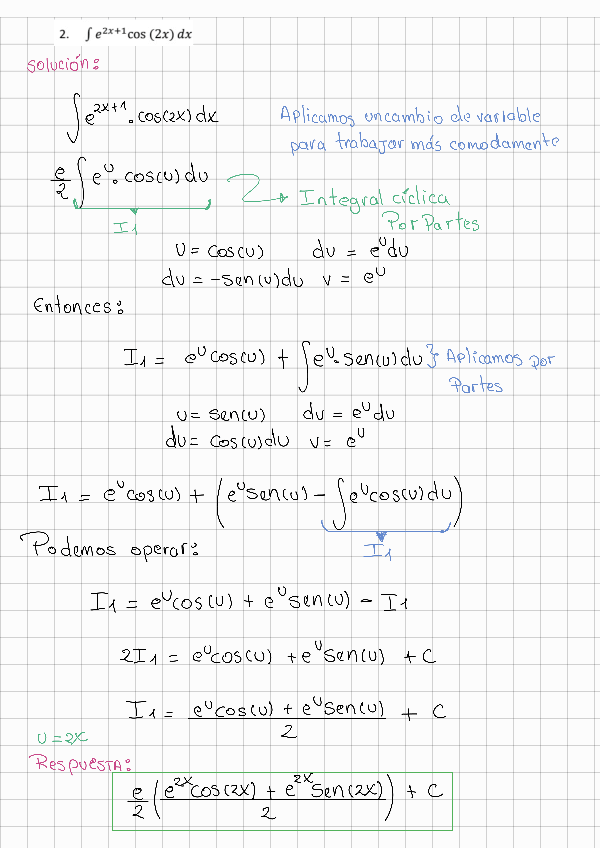 2. ∫ e^{2x+1} cos (2x) dx
Solución:
∫ e^{2x+1} · cos(2x) dx
Aplicamos un cambio de variable
para trabajar más comodamente
e/2 ∫ e^u · cos(u) du
→ Integral cíclica
Por Partes
I1
u = cos(u) dv = e^u du
du = -sen(u) du v = e^u
Entonces:
I1 = e^u cos(u) + ∫ e^u · sen(u) du } Aplicamos por
Partes
u = sen(u) dv = e^u du
du = cos(u) du v = e^u
I1 = e^u cos(u) + (e^u sen(u) - ∫ e^u cos(u) du)
I1
Podemos operar:
I1 = e^u cos(u) + e^u sen(u) - I1
2I1 = e^u cos(u) + e^u sen(u) + C
I1 = (e^u cos(u) + e^u sen(u))/2 + C
u = 2x
Respuesta:
e/2 ((e^{2x} cos(2x) + e^{2x} sen(2x))/2) + C